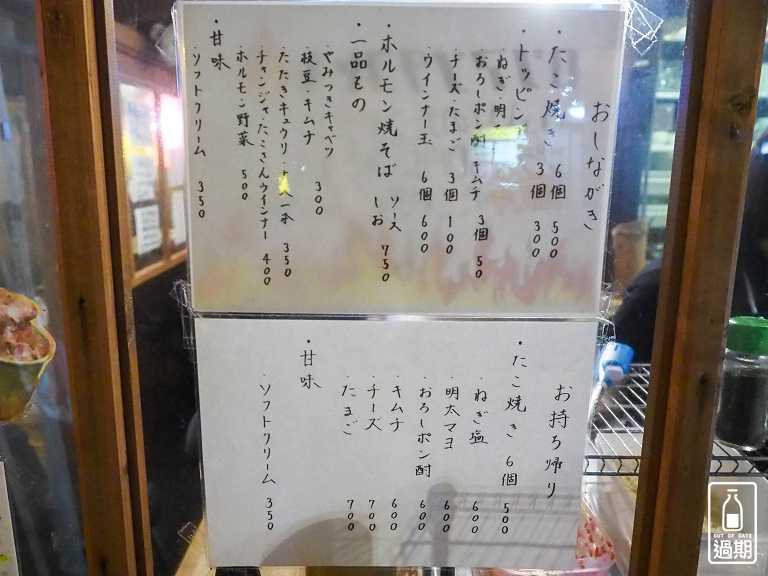 おしながき
・たこ焼き 6個 500
3個 300
・トッピング
・ねぎ・明太
・おろしポン酢 キムチ 3個 50
・チーズ・たまご 3個 100
・ウインナー玉 6個 600
・ホルモン焼そば ソース しお 750
・一品もの
・やみつきキャベツ
・枝豆・キムチ 300
・たたきキュウリ・ 一本 350
・チャンジャ・たこさんウインナー 400
・ホルモン野菜 500
・甘味
・ソフトクリーム 350
お持ち帰り
・たこ焼き 6個 500
・ねぎ塩 600
・明太マヨ 600
・おろしポン酢 600
・キムチ 600
・チーズ 700
・たまご 700
・甘味
・ソフトクリーム 350
OUT OF DATE
過期